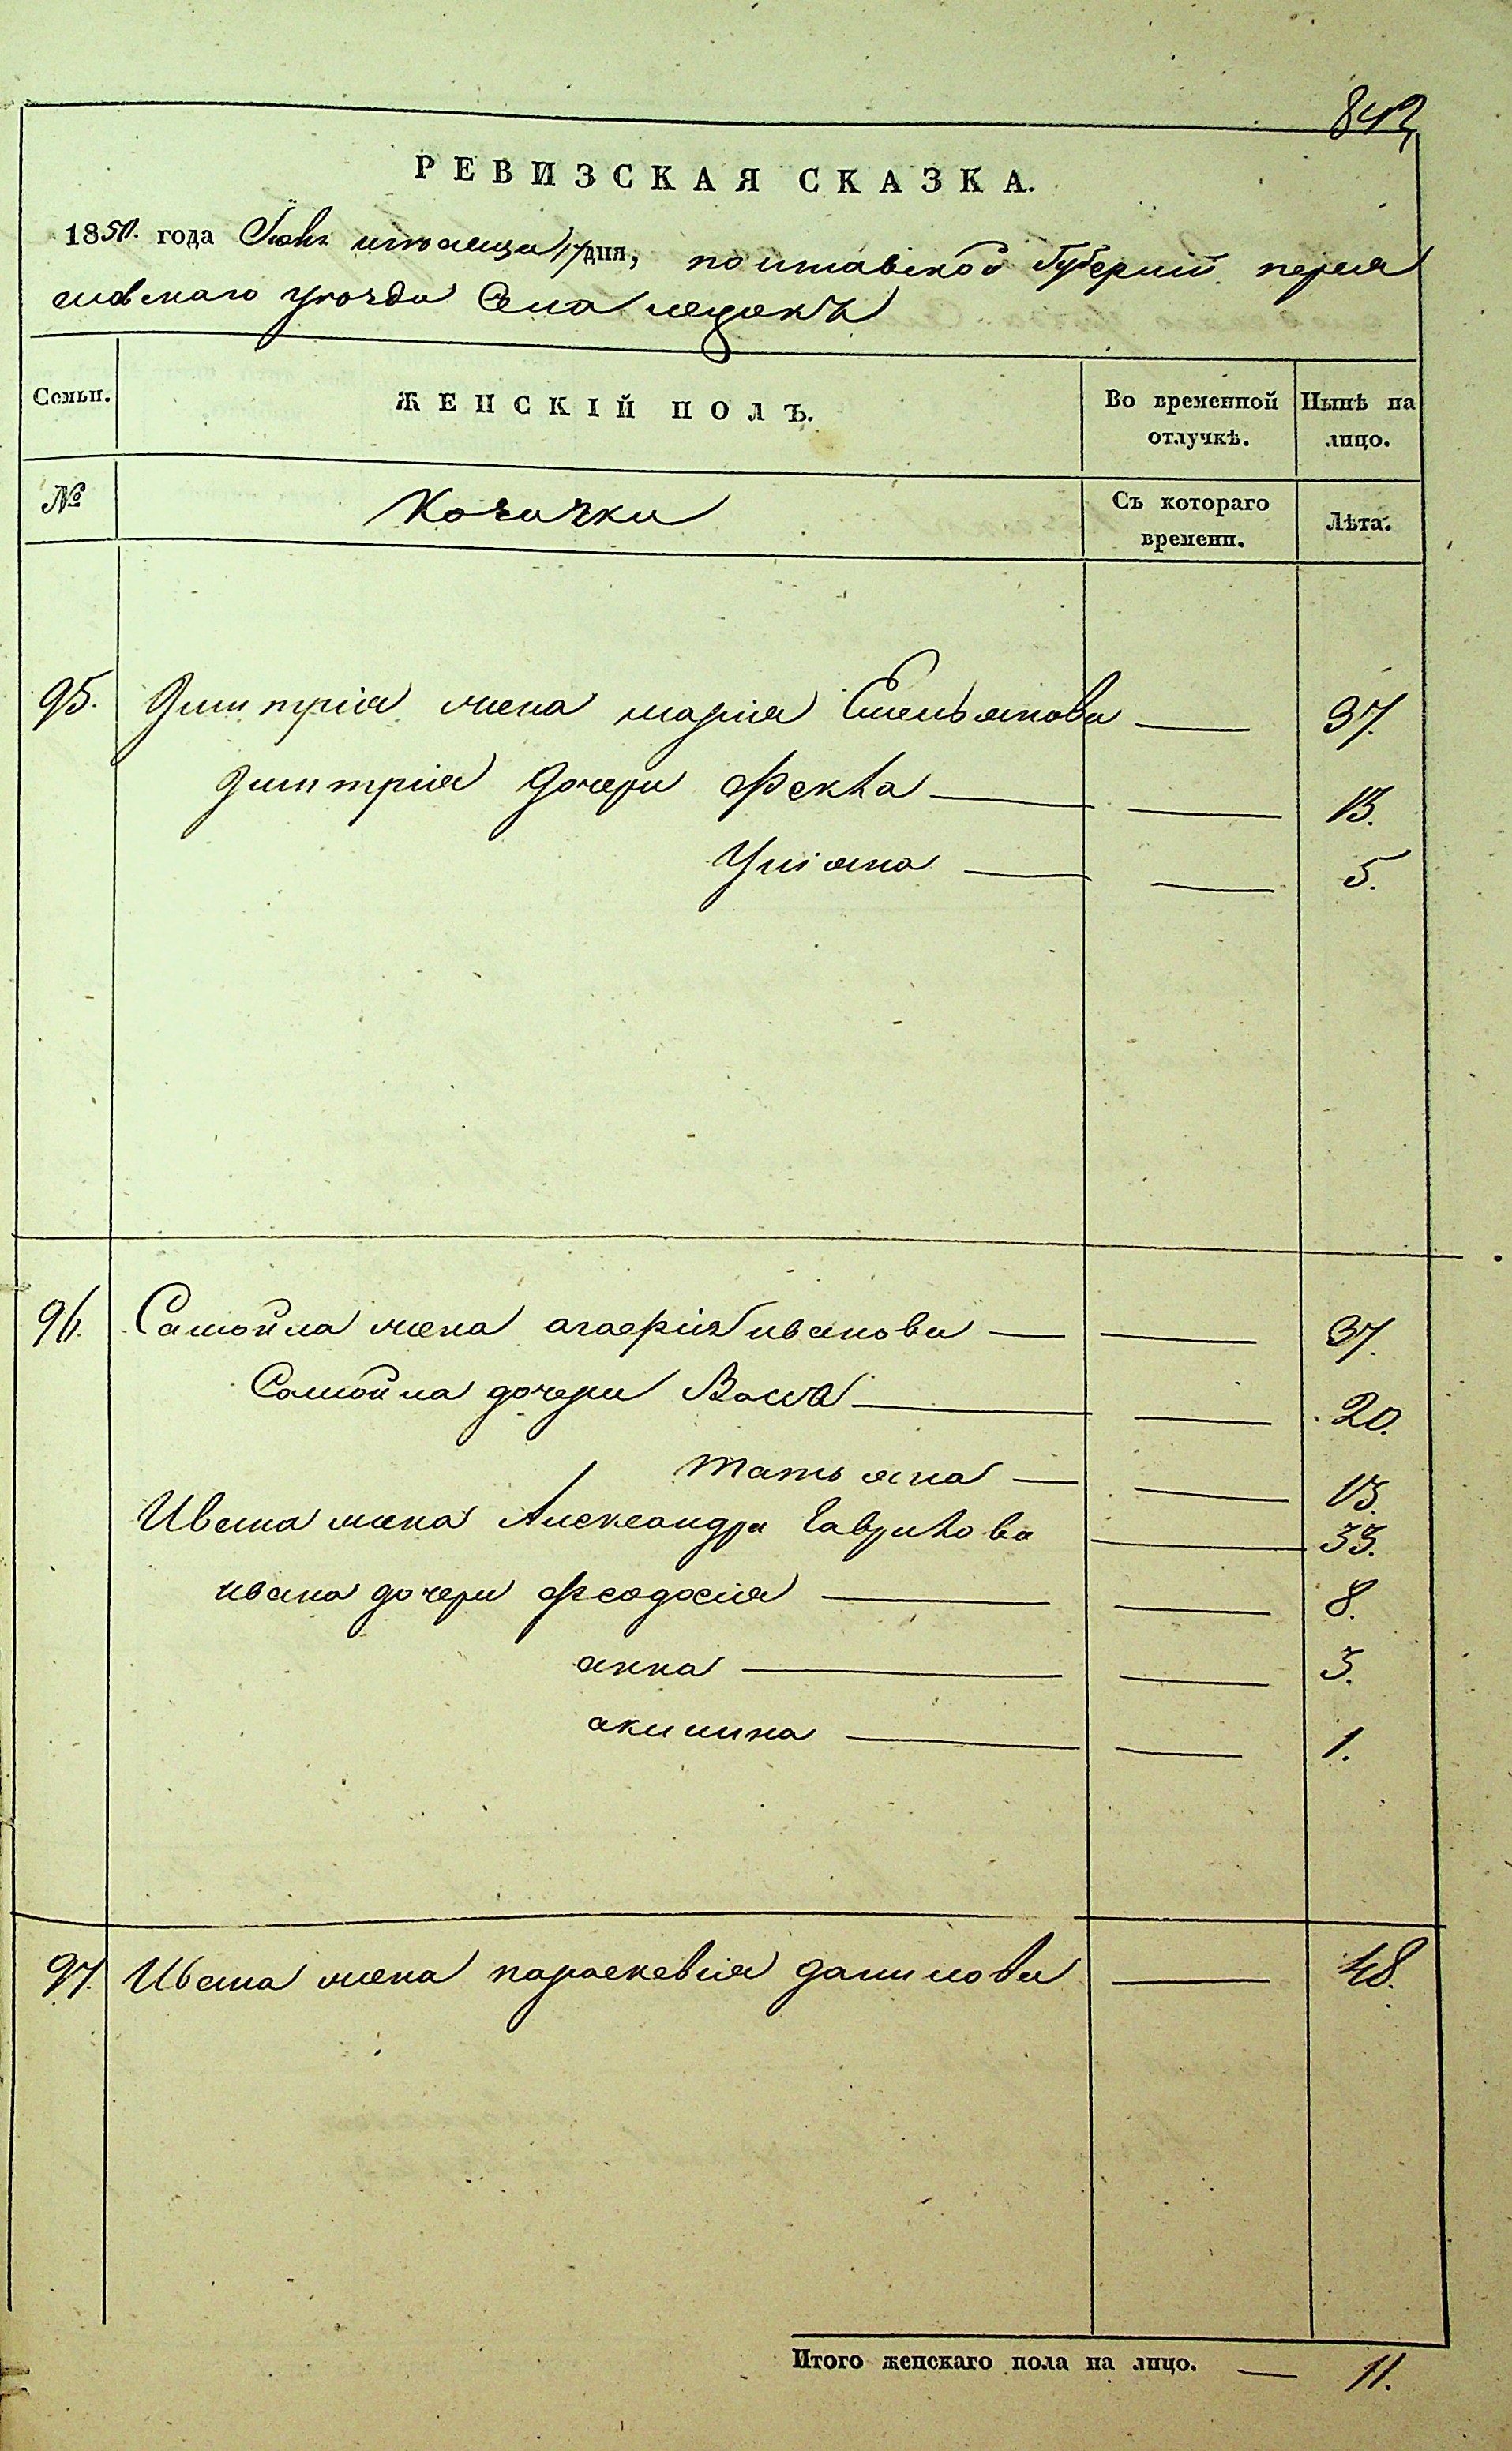 842
РЕВИЗСКАЯ СКАЗКА.
1850. года Іюня месяца 17 дня, полтавской Губерніи перея
славскаго уезда Села
Семьи. ЖЕНСКІЙ ПОЛЪ. Во временной отлучкѣ. Нынѣ на лицо.
№ Козачки Съ котораго времени. Лѣта.
95. Дмитрія жена марія Емельянова — 37.
Дмитрія дочери Фекла — — 13.
Уліяна — — 5.
96. Самойла жена агафія иванова — — 37.
Самойла дочери Васса — — 20.
татьяна — — 13.
Ивана жена Александра Гаврилова — 33.
ивана дочери феодосія — — 8.
анна — — 3.
акилина — — 1.
97. Ивана жена параскевія данилова — 48.
Итого женскаго пола на лицо. — 11.